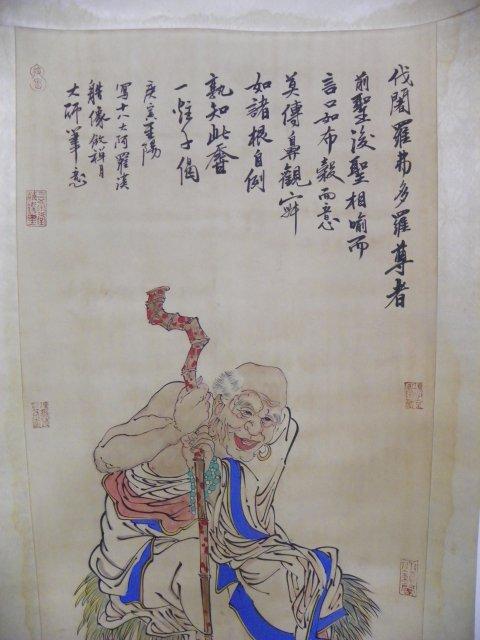 伐闍羅弗多羅尊者
前聖後聖相喻而
言口如布穀而意
莫傳鼻觀寂
如諸根自例
孰知此香
一炷千偈
庚寅重陽
寫十八大阿羅漢
像倣禪月
大師筆意